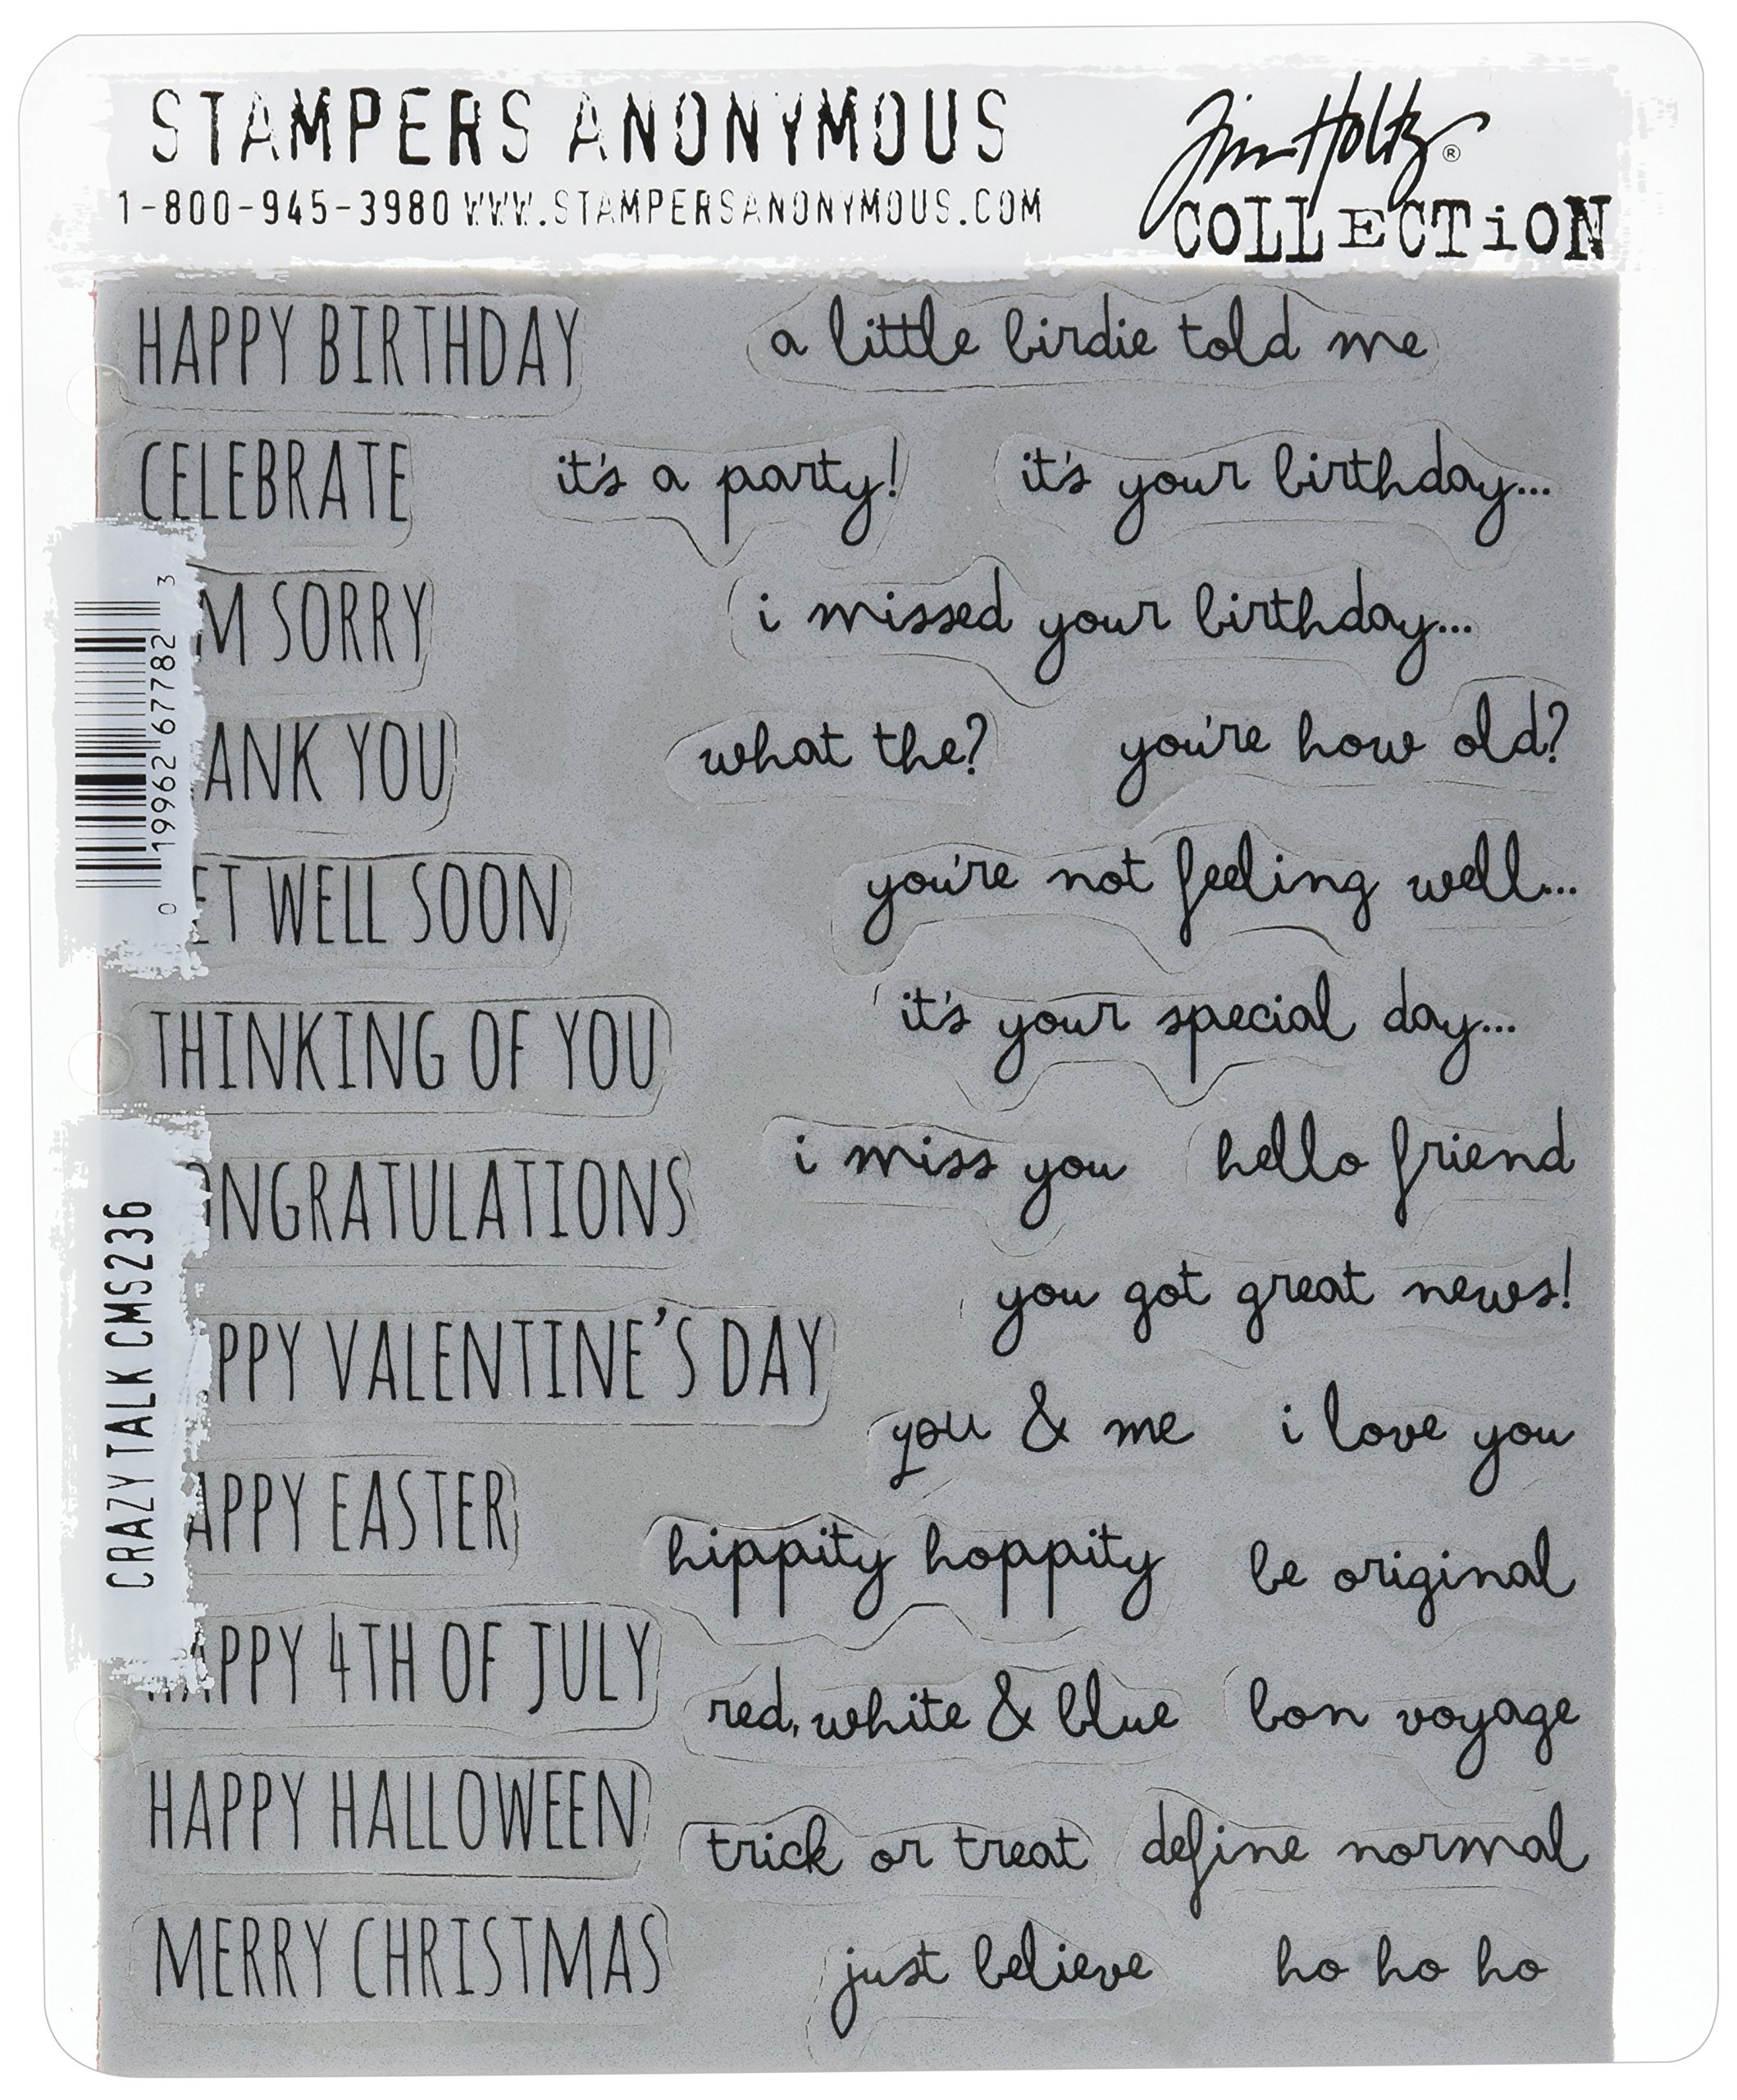 STAMPERS ANONYMOUS
1-800-945-3980 WWW.STAMPERSANONYMOUS.COM
Tim Holtz®
COLLECTiON
HAPPY BIRTHDAY a little birdie told me
CELEBRATE it's a party! it's your birthday...
M SORRY i missed your birthday...
ANK YOU what the? you're how old?
ET WELL SOON you're not feeling well...
THINKING OF YOU it's your special day...
ONGRATULATIONS i miss you hello friend
you got great news!
PPY VALENTINE'S DAY
you & me i love you
APPY EASTER hippity hoppity be original
HAPPY 4TH OF JULY red, white & blue bon voyage
HAPPY HALLOWEEN trick or treat define normal
MERRY CHRISTMAS just believe ho ho ho
0 19962 67782 3
CRAZY TALK CMS236